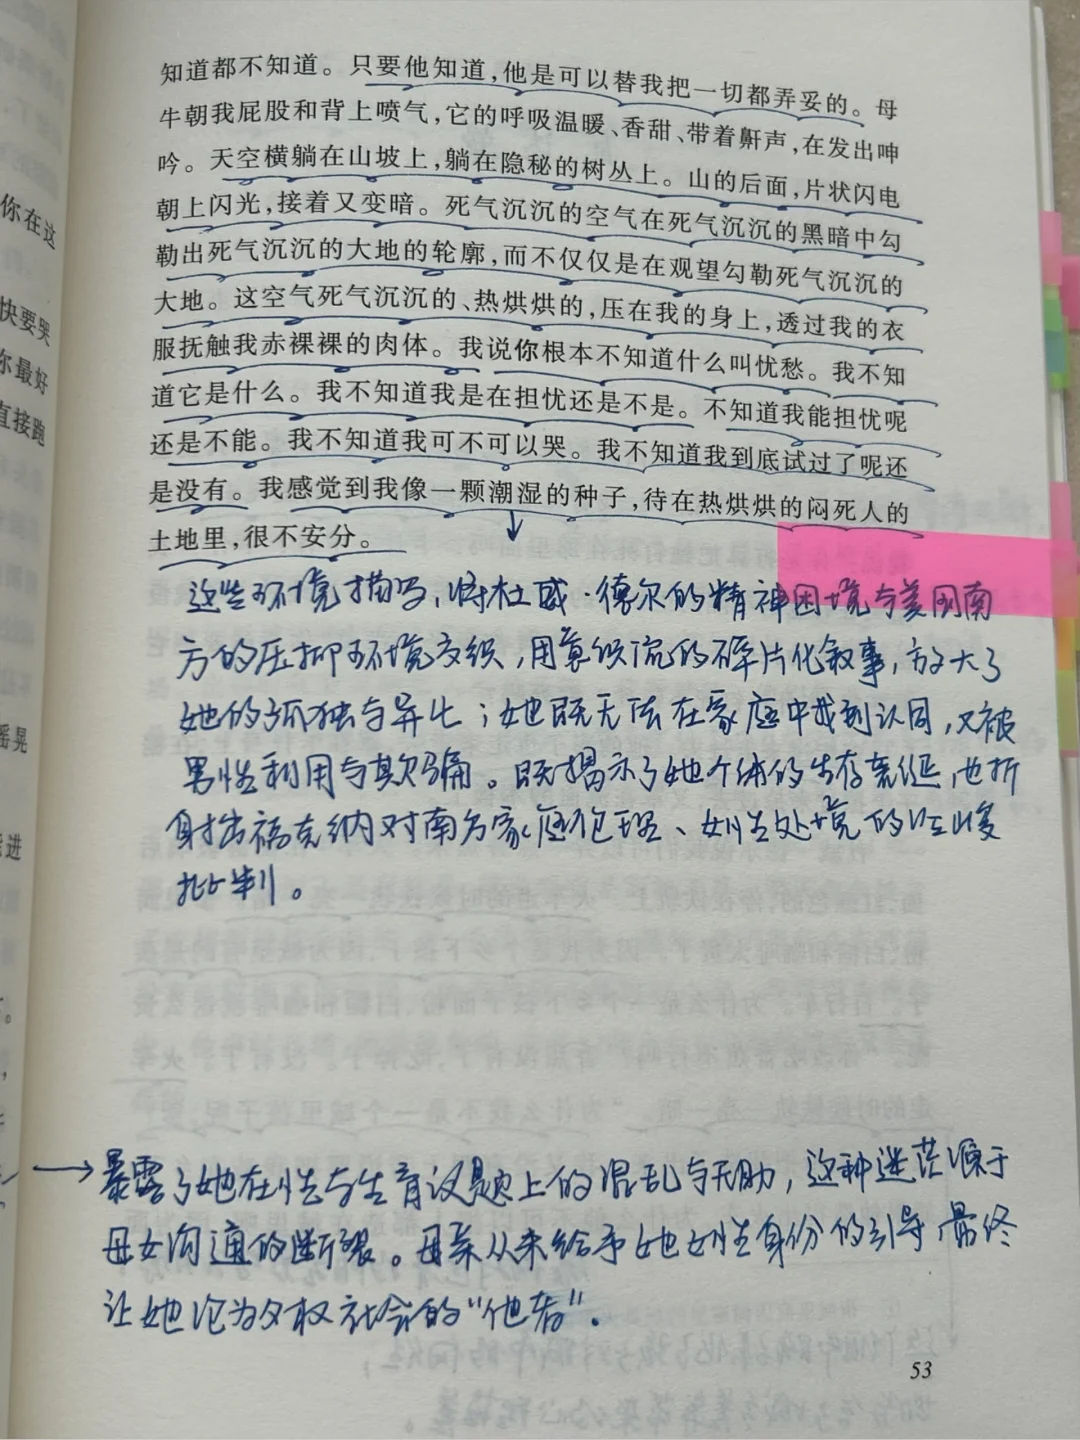 知道都不知道。只要他知道，他是可以替我把一切都弄妥的。母
牛朝我屁股和背上喷气，它的呼吸温暖、香甜、带着鼾声，在发出呻
吟。天空横躺在山坡上，躺在隐秘的树丛上。山的后面，片状闪电
朝上闪光，接着又变暗。死气沉沉的空气在死气沉沉的黑暗中勾
勒出死气沉沉的大地的轮廓，而不仅仅是在观望勾勒死气沉沉的
大地。这空气死气沉沉的、热烘烘的，压在我的身上，透过我的衣
服抚触我赤裸裸的肉体。我说你根本不知道什么叫忧愁。我不知
道它是什么。我不知道我是在担忧还是不是。不知道我能担忧呢
还是不能。我不知道我可不可以哭。我不知道我到底试过了呢还
是没有。我感觉到我像一颗潮湿的种子，待在热烘烘的闷死人的
土地里，很不安分。
这些环境描写，将杜威·德尔的精神困境与美国南
方的压抑环境交织，用意识流的碎片化叙事，放大了
她的孤独与异化；她既无法在家庭中找到认同，又被
男性利用与欺骗。既揭示了她个体的生存荒诞，也折
射出福克纳对南方家庭伦理、女性处境的
批判。
暴露了她在性与生育议题上的混乱与无助，这种迷茫源于
母女沟通的断裂。母亲从未给予她女性身份的引导，最终
让她沦为父权社会的“他者”。
53
你在这
快要哭
你最好
直接跑
摇晃
进